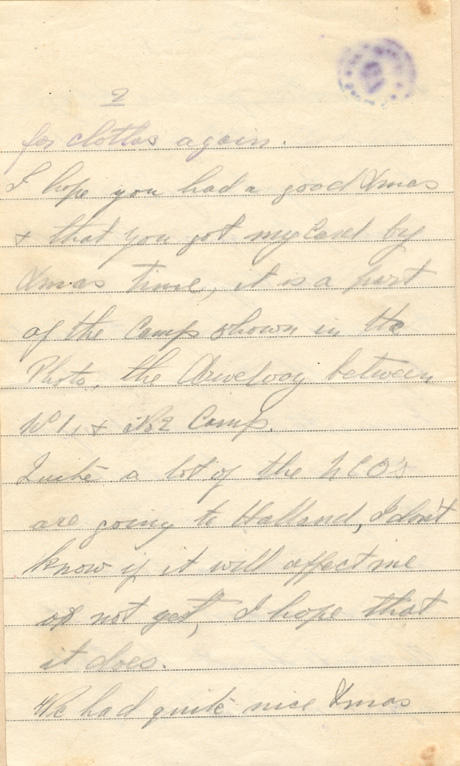 2
for clothes again.
I hope you had a good Xmas
+ that you got my Card by
Xmas time, it is a part
of the Camp shown in the
Photo, the between
No 1, + No 2 Camp.
Quite a lot of the NCO's
are going to Holland, I don't
know if it will affect me
or not yet, I hope that
it does.
We had quite nice Xmas